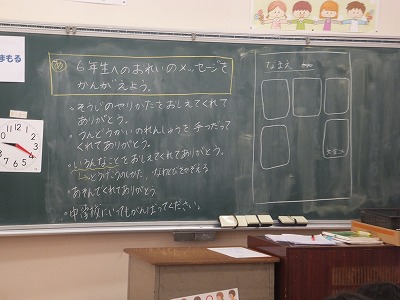 まもる
め 6年生へのおれいのメッセージを
かんがえよう。
・そうじのやりかたをおしえてくれて
ありがとう。
・うんどうかいのれんしゅうを手つだって
くれてありがとう。
・いろんなことをおしえてくれてありがとう。
なわとびをかぞえる
・あそんでくれてありがとう
・中学校にいってもがんばってください。
なまえ